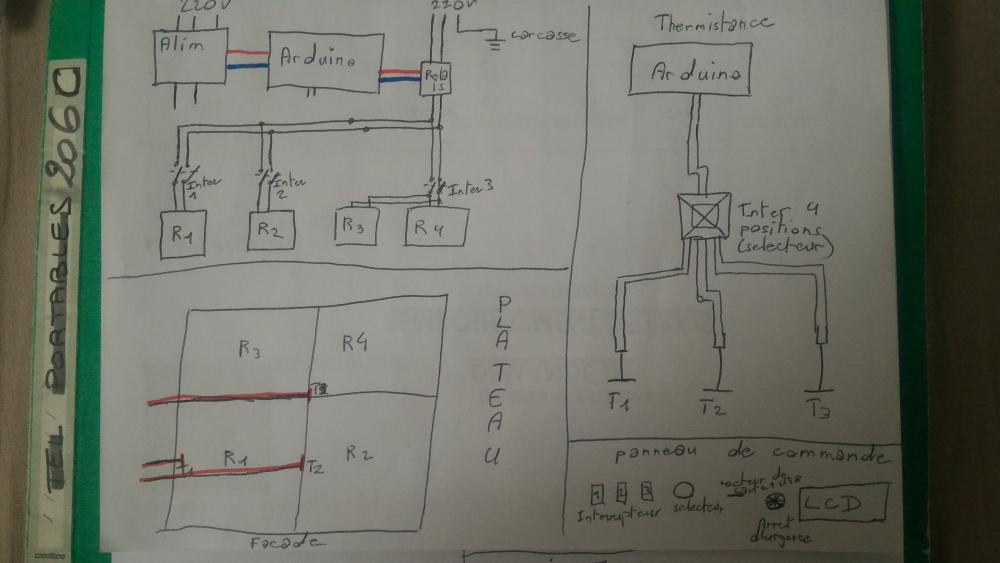 TEL PORTABLES 206C
220V
Alim
Arduino
220V
carcasse
Relais
Inter
1
Inter
2
Inter 3
R1
R2
R3
R4
Thermistance
Arduino
Inter 4
positions
(selecteur)
T1
T2
T3
R3
R4
R1
T2
R2
Facade
PLATEAU
panneau de commande
1
2
3
Interrupteur
selecteur
LCD
Arret
d'urgence